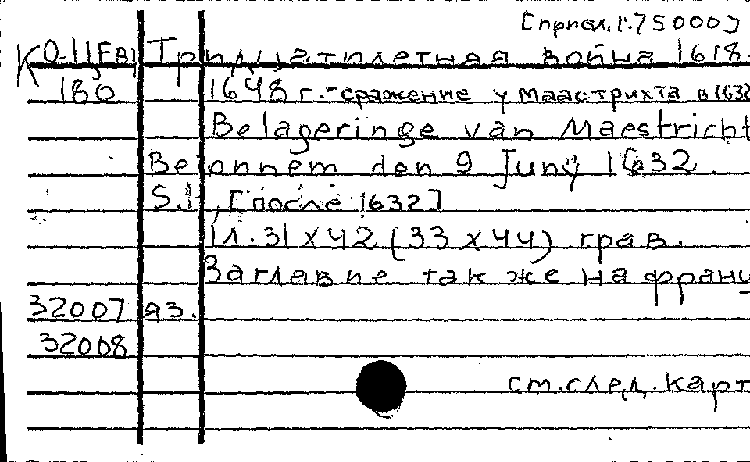 [припол. 1:75000]
К О-ЦЕВ Тридцатилетняя война 1618
180 1648 г. - сражение у Маастрихта в 1632
Belageringe van Maestricht
Begonnem den 9 Juny 1632.
S.l., [после 1632]
1 л. 31 x 42 (33 x 44) грав.
Заглавие так же на франц
32007 яз.
32008
см. след. карт